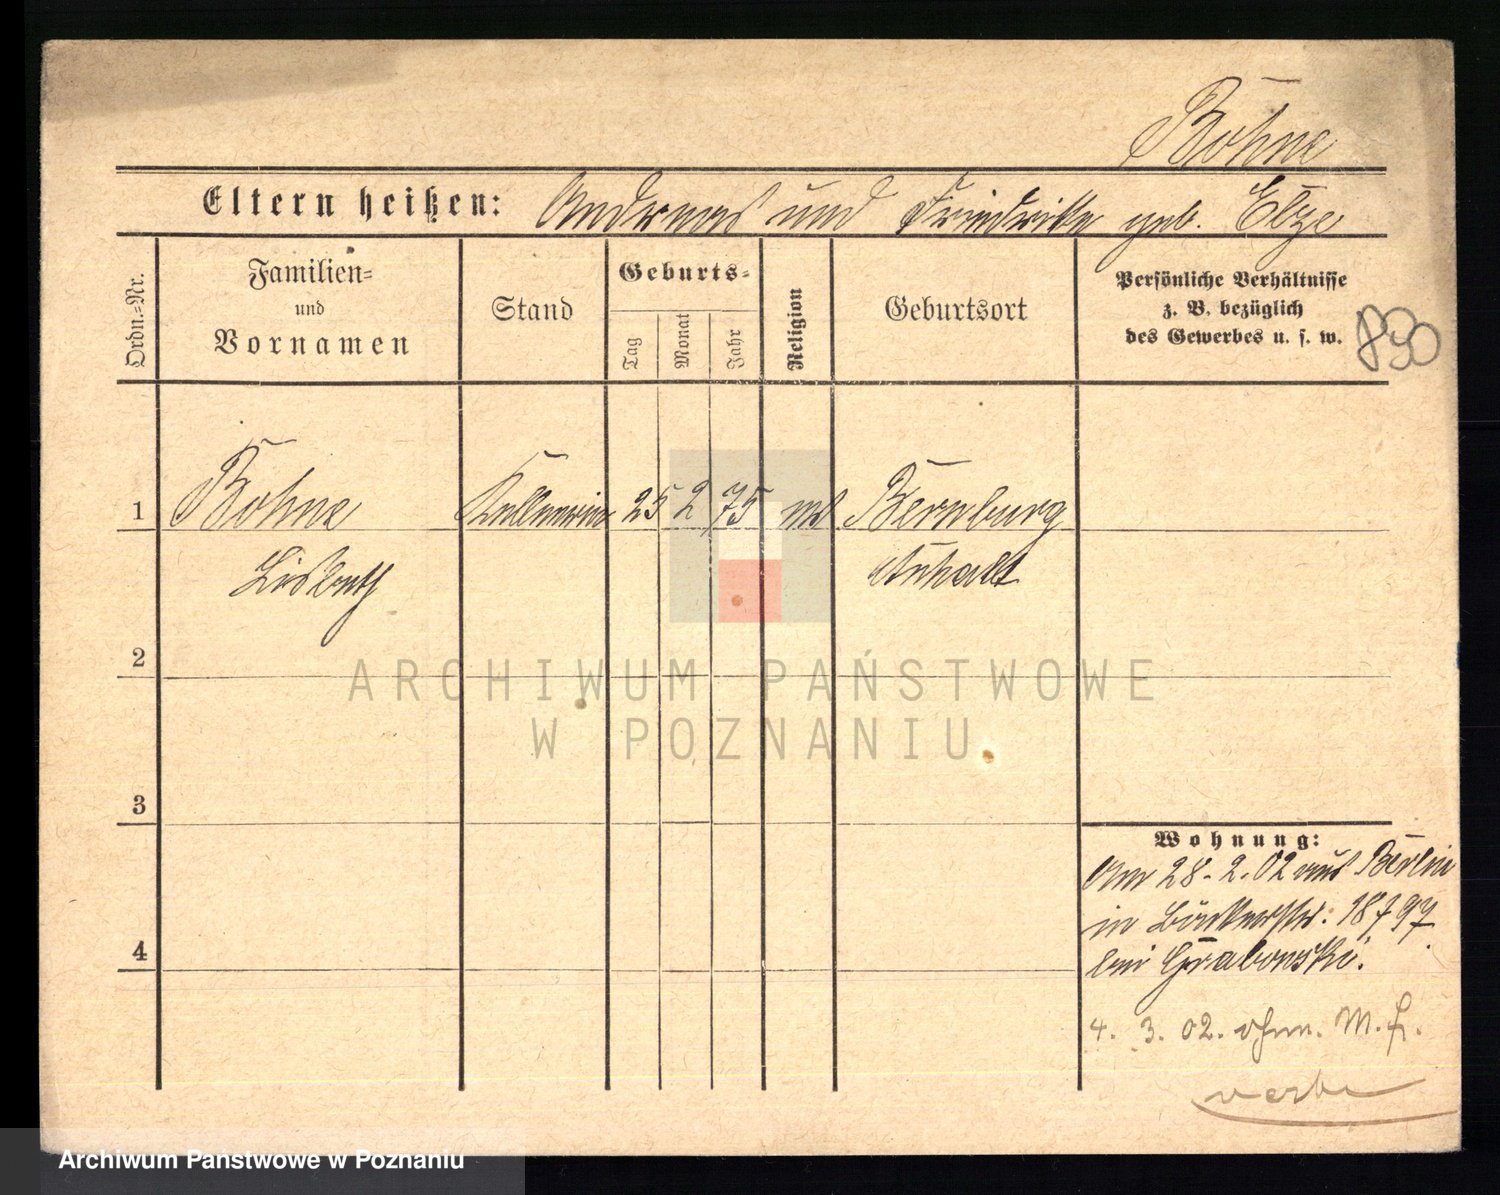 Böhne
Eltern heißen: Andreas und Friedrike geb. Elze
Ordn.-Nr.
Familien-
und
Vornamen
Stand
Geburts-
Tag
Monat
Jahr
Religion
Geburtsort
Persönliche Verhältnisse
z. B. bezüglich
des Gewerbes u. s. w.
830
1 Böhne Kellnerin 25 2 75 Bernburg
Lisbeth Anhalt
2
3
4
Wohnung:
Am 28. 2. 02 aus Berlin
in Bäckerstr: 18797
bei Grabowski.
4. 3. 02. ohne. M. Z.
ARCHIWUM PAŃSTWOWE
W POZNANIU
Archiwum Państwowe w Poznaniu